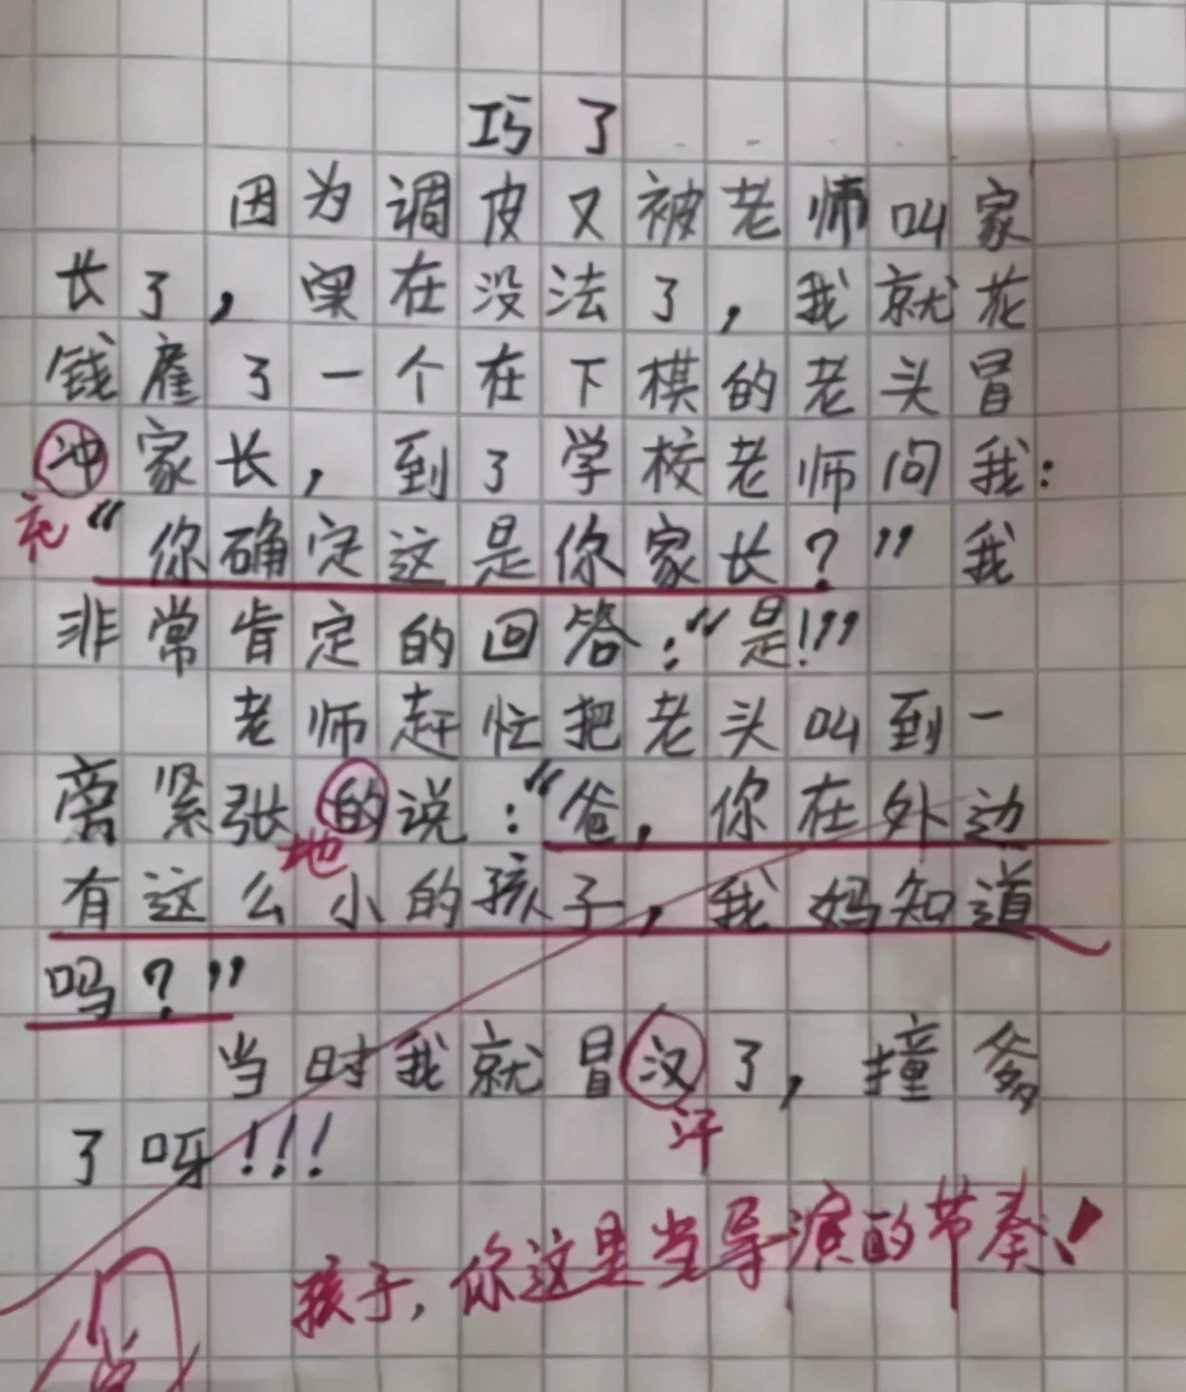 巧了
因为调皮又被老师叫家
长了，实在没法了，我就花
钱雇了一个在下棋的老头冒
冲家长，到了学校老师问我：
充
“你确定这是你家长？”我
非常肯定的回答：“是！”
老师赶忙把老头叫到一
旁紧张的说：“爸，你在外边
地
有这么小的孩子，我妈知道
吗？”
当时我就冒汉了，撞爹
汗
了呀！！！
孩子，你这是当导演的节奏！